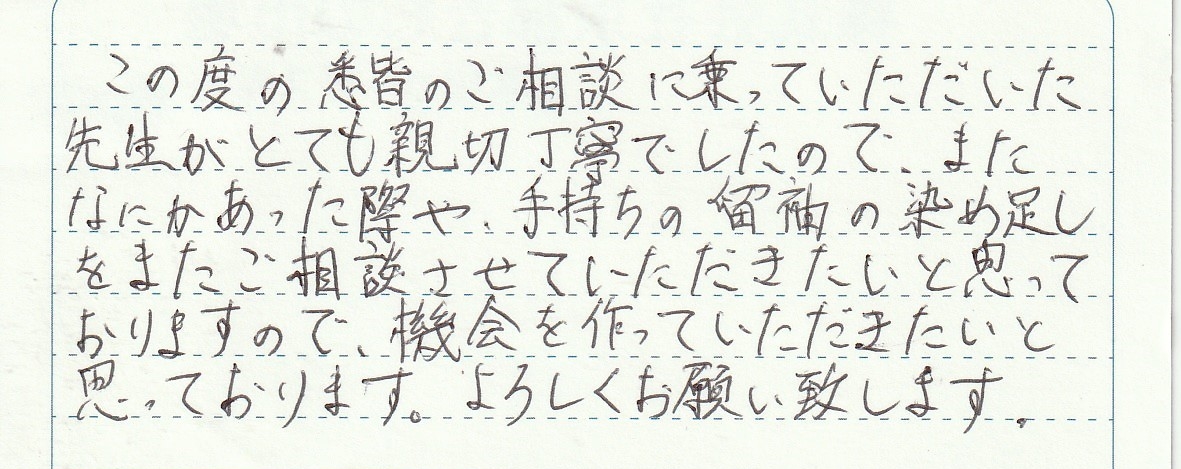 この度の悉皆のご相談に乗っていただいた
先生がとても親切丁寧でしたので、また
なにかあった際や、手持ちの留袖の染め足し
をまたご相談させていただきたいと思って
おりますので、機会を作っていただきたいと
思っております。よろしくお願い致します。